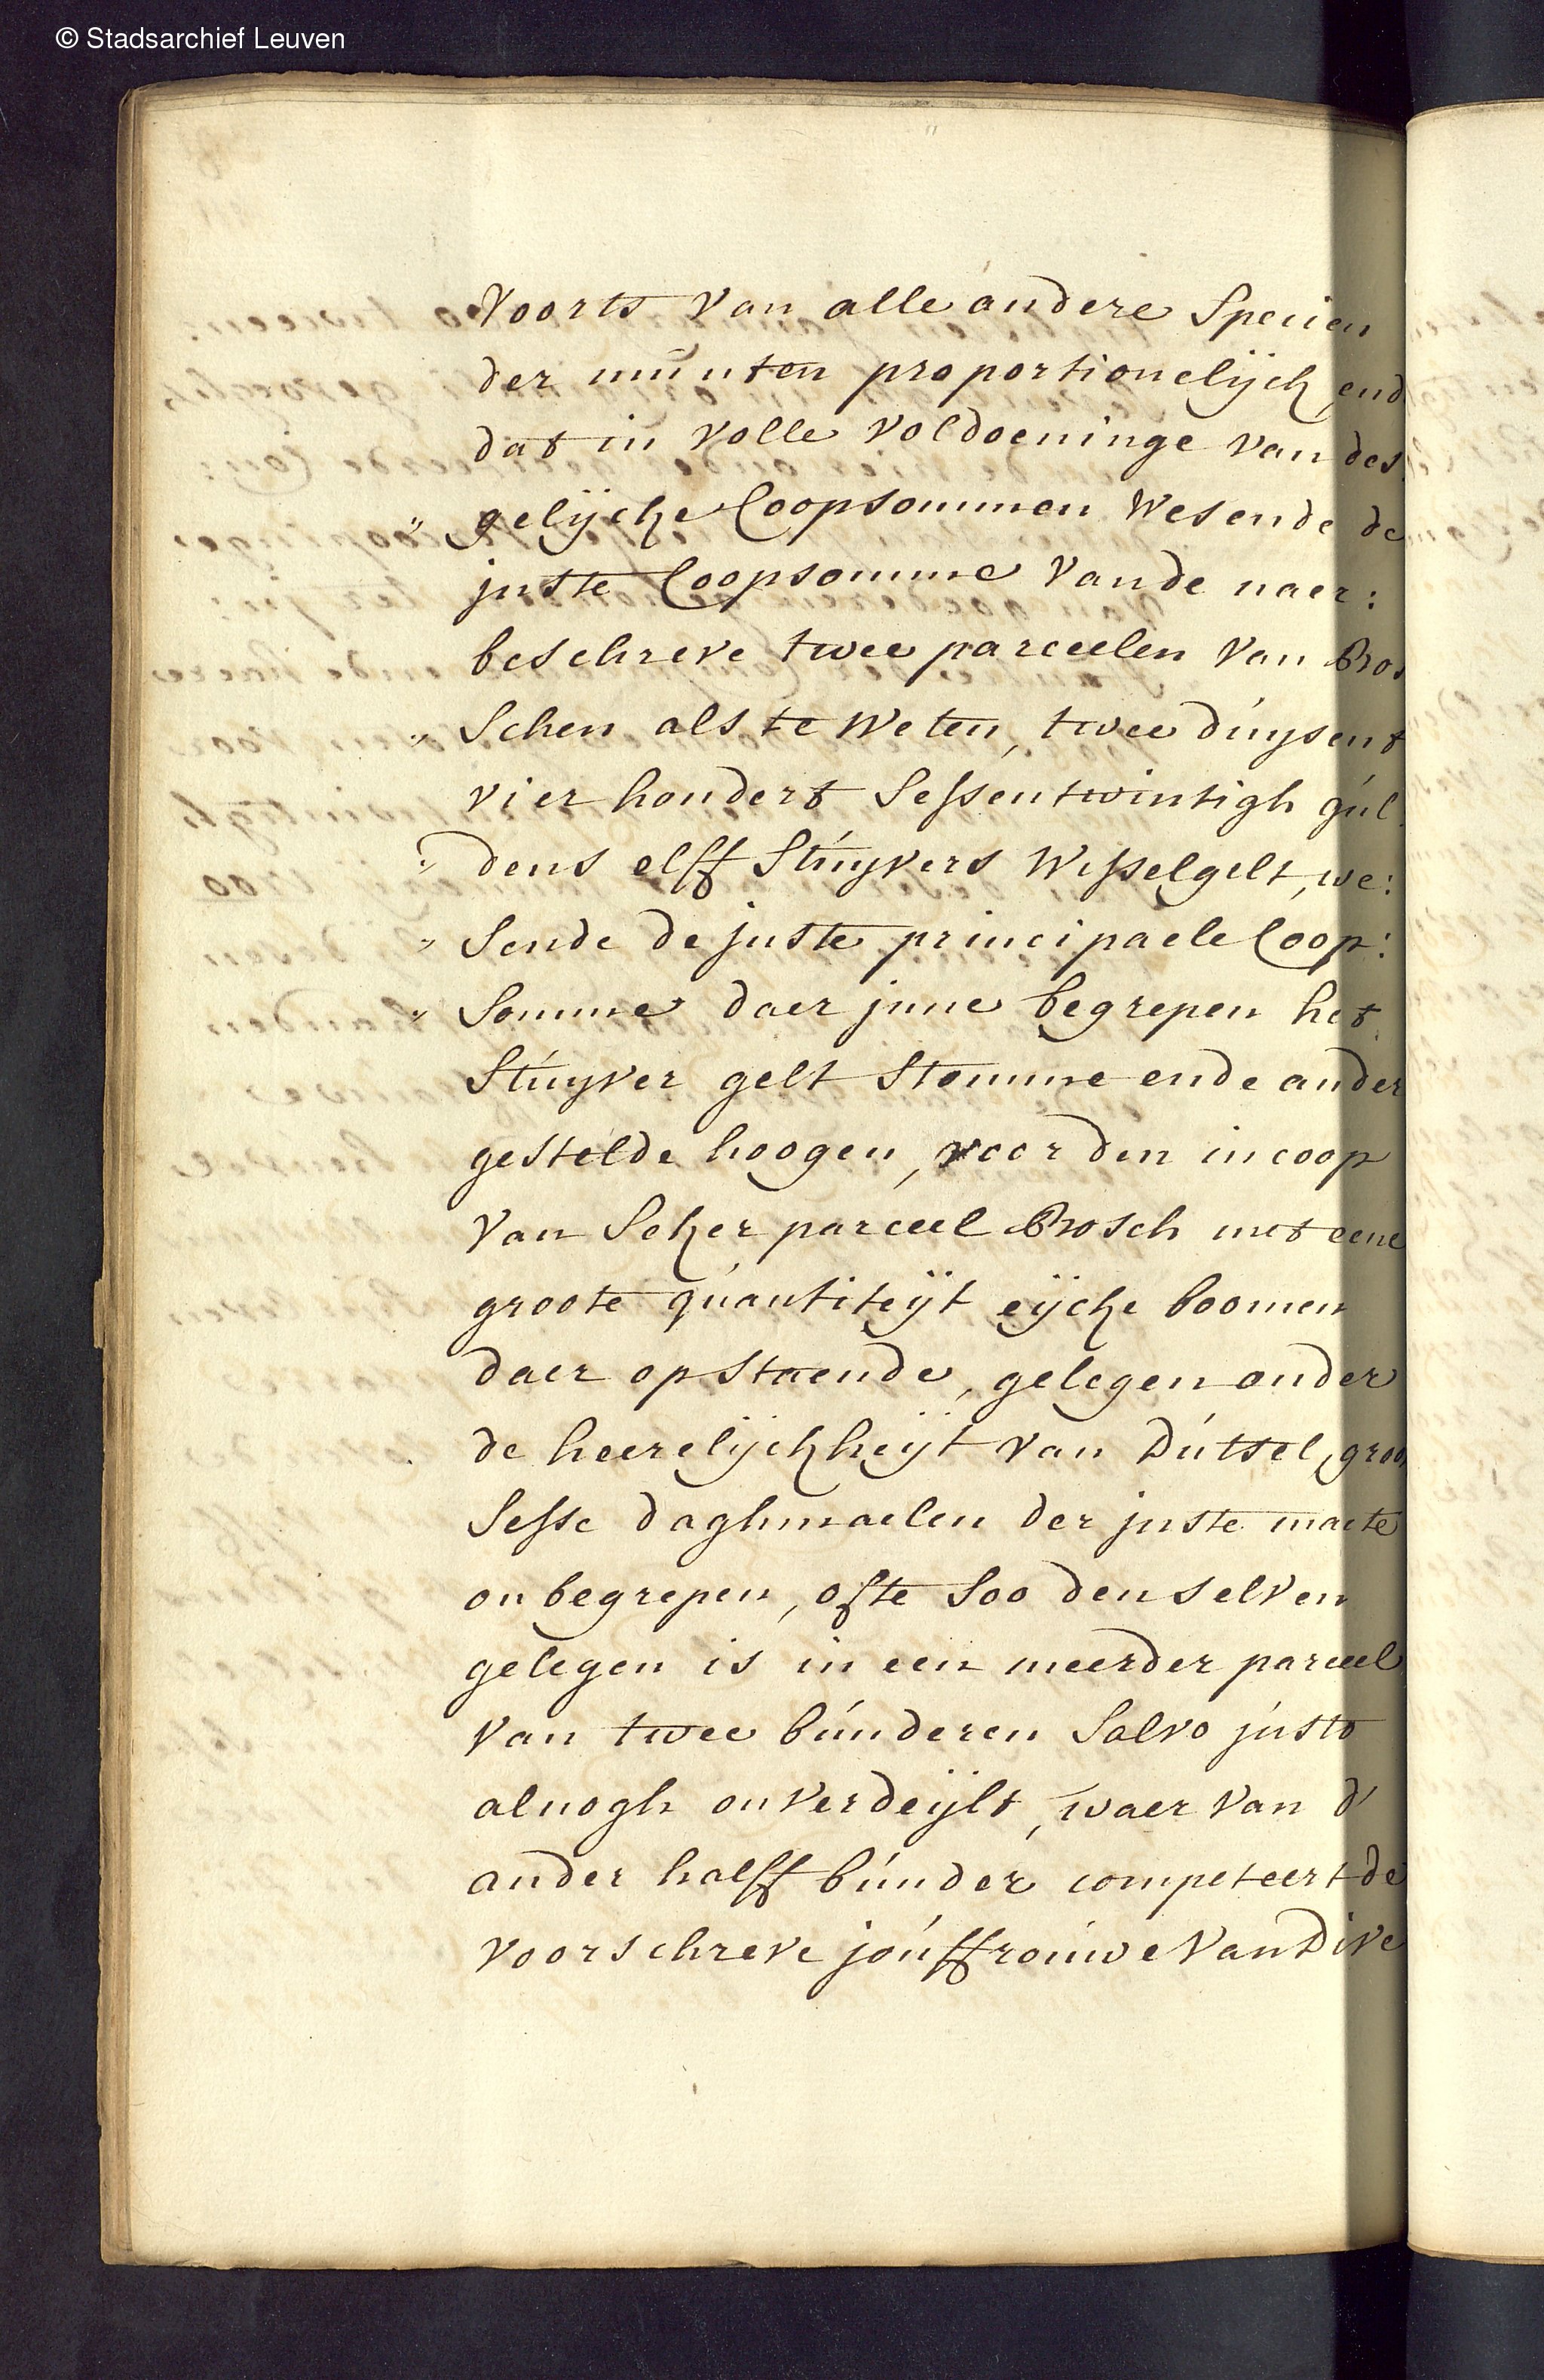 © Stadsarchief Leuven
Voorts van alle andere Specien
der munten proportionelijck end
dat in volle voldoeninge van des
" gelijcke Coopsommen wesende de
juste Coopsomme vande naer:
beschreve twee parceelen van Bos
" schen als te weten, twee duysent
vier hondert sessentwintigh gul
" dens elff stuyvers wisselgelt, we:
" sende de juste principaele Coop:
" somme daer inne begrepen het
stuyver gelt stomme ende ander
gestelde hoogen, voor den incoop
van seker parceel Bosch met eene
groote quantiteijt eijcke boomen
daer op staende, gelegen onder
de heerelijckheijt van Dutsel, groo
sesse daghmaelen der juste maete
onbegrepen, ofte soo denselven
gelegen is in een meerder parceel
van twee bunderen salvo justo
alnogh onverdeijlt, waer van d'
ander halff bunder competeert de
voorschreve jouffrouwe Van Dive